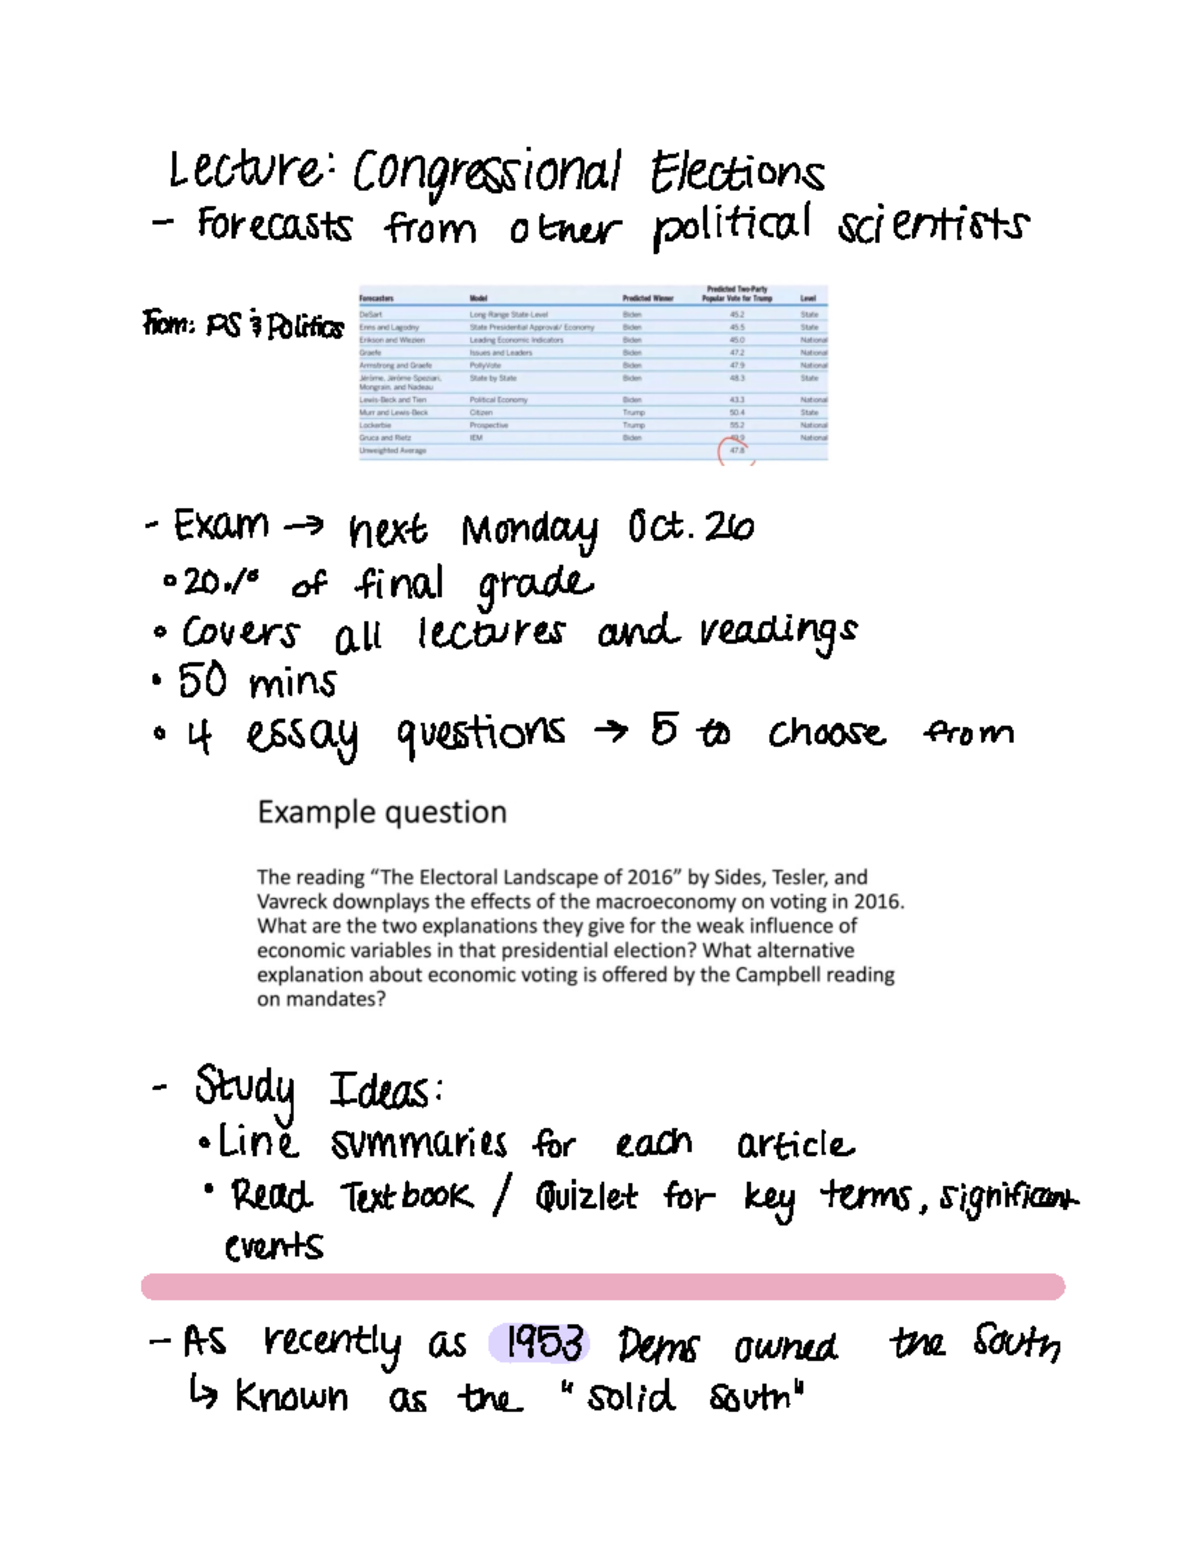 Lecture: Congressional Elections
- Forecasts from other political scientists
From: PS & Politics
Forecasters Model Predicted Winner Predicted Two-Party Popular Vote for Trump Level
DeSart Long Range State Level Biden 45.2 State
Enns and Lagodny State Presidential Approval/ Economy Biden 45.5 State
Erikson and Wlezien Leading Economic Indicators Biden 45.0 National
Graefe Issues and Leaders Biden 47.2 National
Armstrong and Graefe PollyVote Biden 47.9 National
Jérôme, Jérôme-Speziari, Mongrain, and Nadeau State by State Biden 48.3 State
Lewis-Beck and Tien Political Economy Biden 43.3 National
Murr and Lewis-Beck Citizen Trump 50.4 State
Lockerbie Prospective Trump 55.2 National
Gruca and Rietz IEM Biden National
Unweighted Average 47.8
- Exam → next Monday Oct. 26
• 20% of final grade
• Covers all lectures and readings
• 50 mins
• 4 essay questions → 5 to choose from
Example question
The reading “The Electoral Landscape of 2016” by Sides, Tesler, and
Vavreck downplays the effects of the macroeconomy on voting in 2016.
What are the two explanations they give for the weak influence of
economic variables in that presidential election? What alternative
explanation about economic voting is offered by the Campbell reading
on mandates?
- Study Ideas:
• Line summaries for each article
• Read Textbook / Quizlet for key terms, significant
events
- As recently as 1953 Dems owned the South
↳ Known as the "solid south"